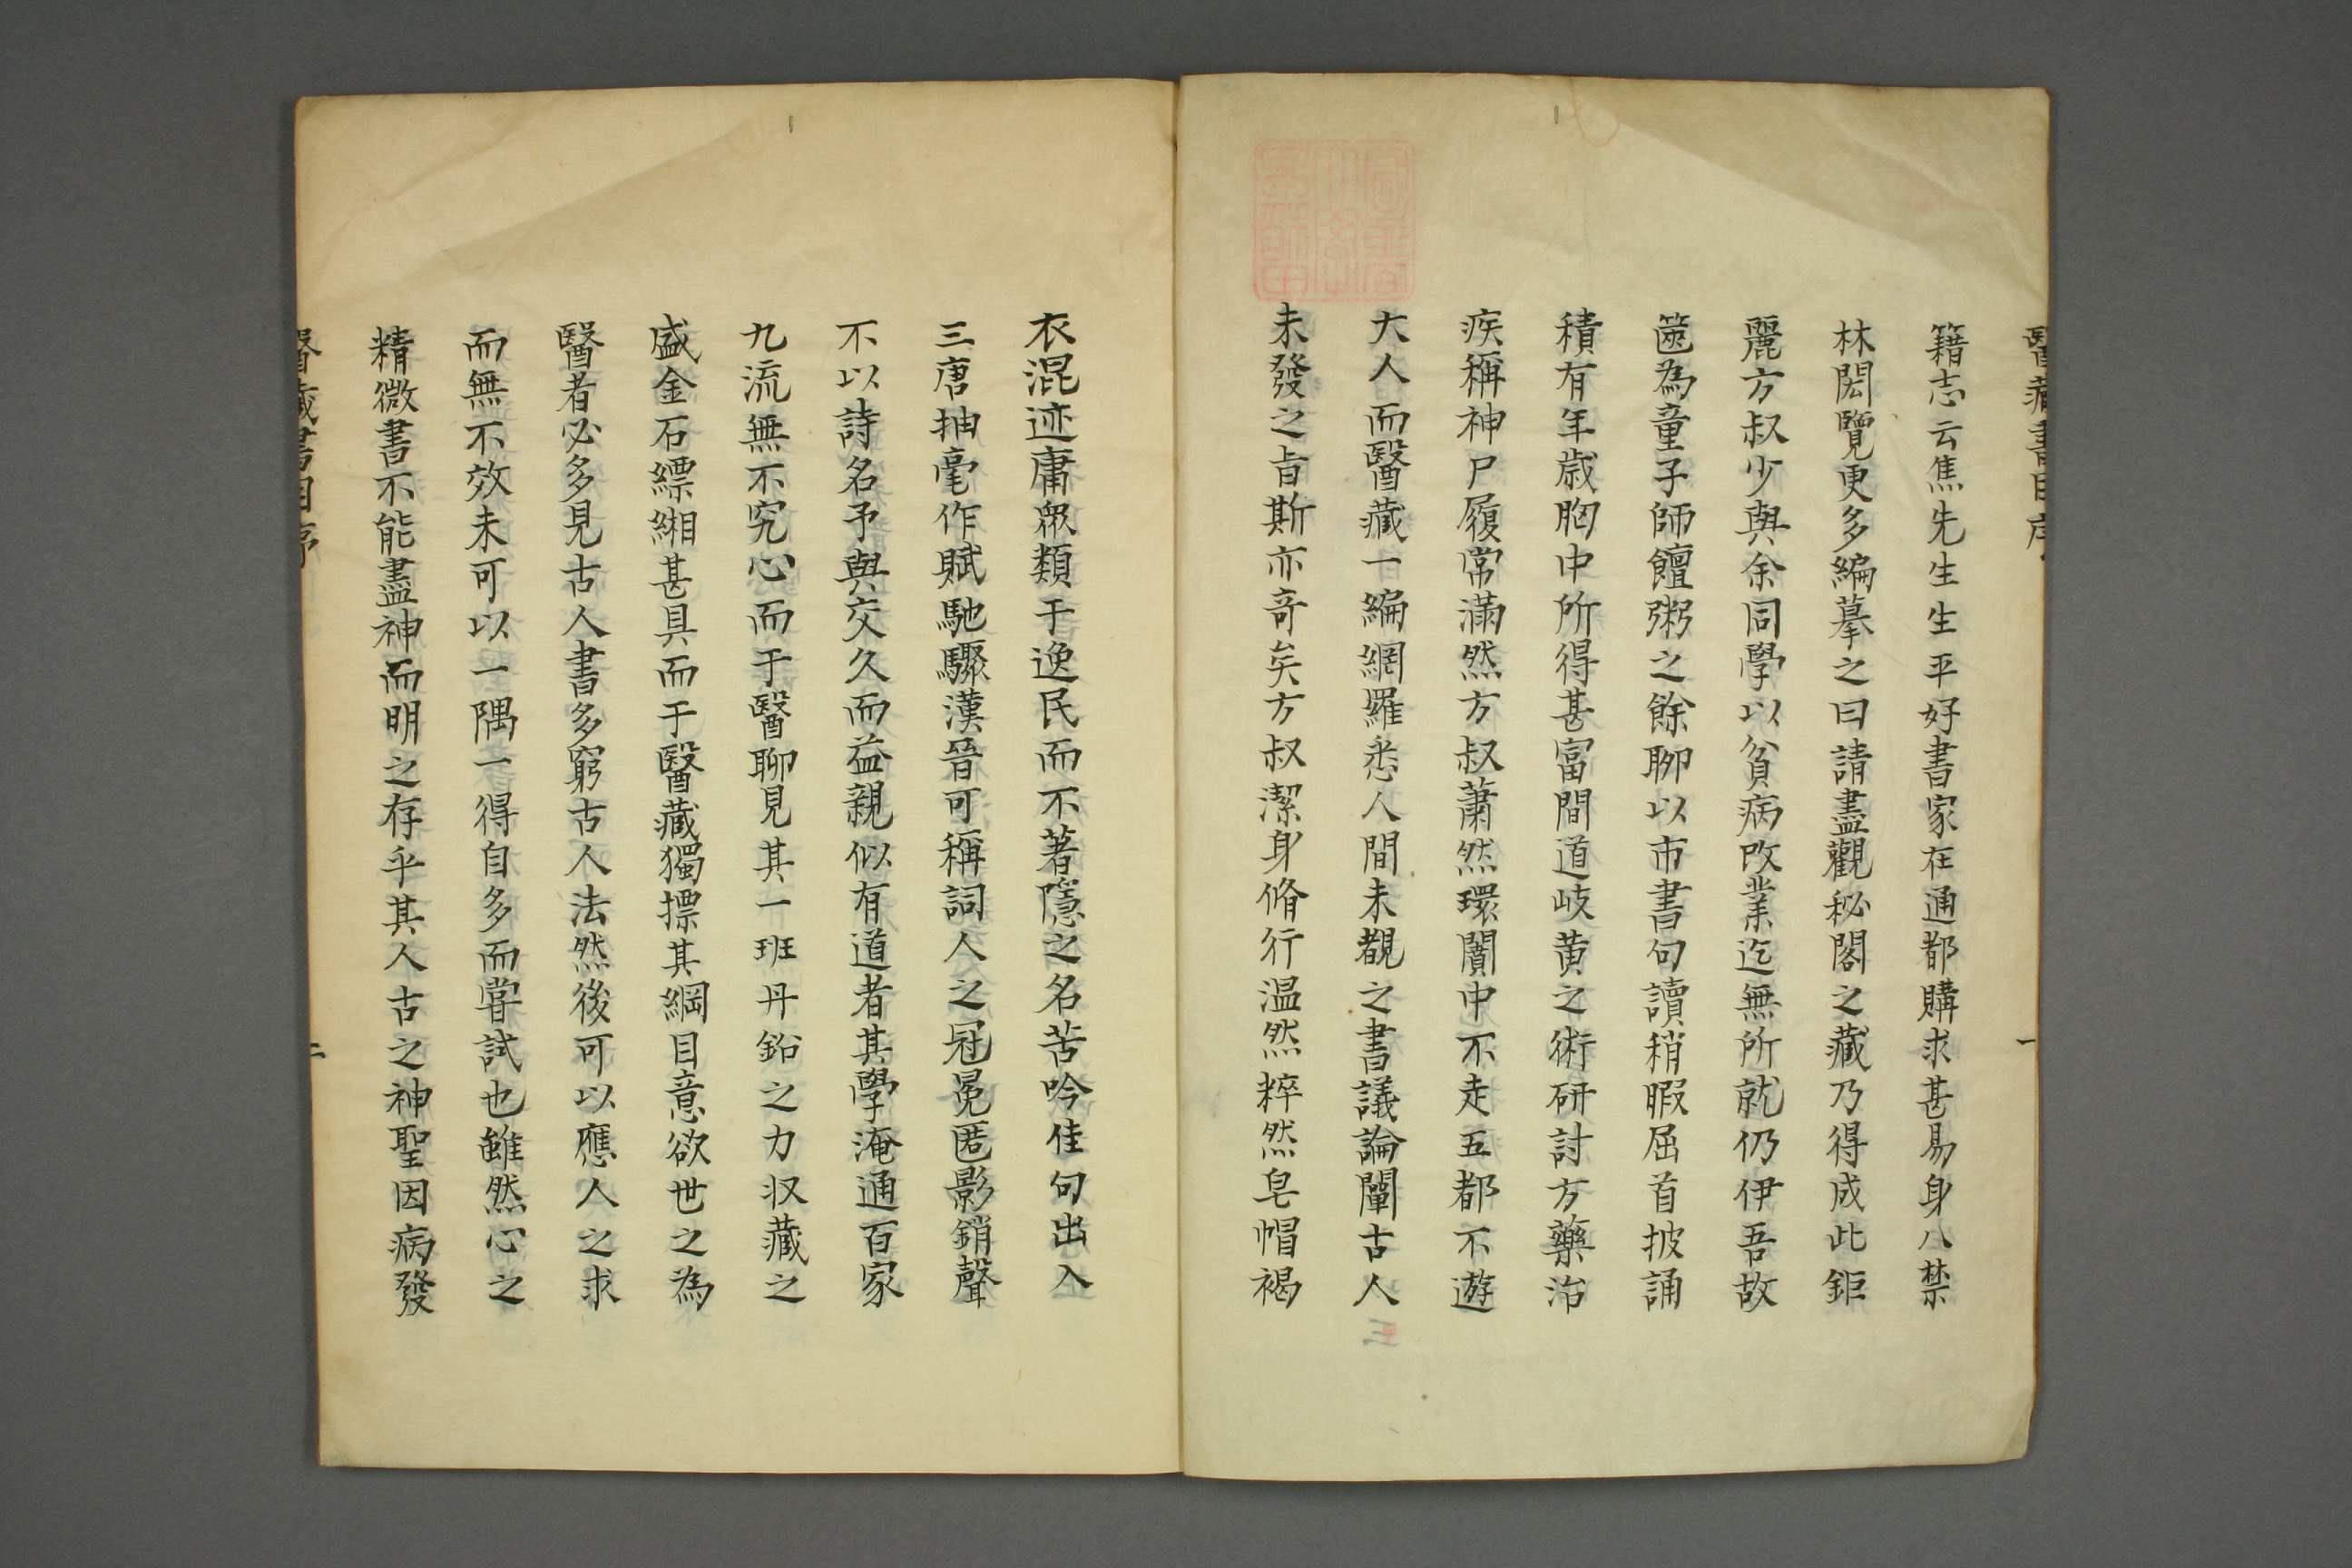 醫藏書目序
一
籍志云焦先生生平好書家在通都購求甚易身入禁
林閎覽更多編摹之曰請盡觀秘閣之藏乃得成此鉅
麗方叔少與余同學以貧病改業迄無所就仍伊吾故
篋為童子師饘粥之餘聊以市書句讀稍暇屈首披誦
積有年歲胸中所得甚富間道岐黃之術研討方藥治
疾稱神尸履常滿然方叔蕭然環闠中不走五都不遊
大人而醫藏一編網羅悉人間未覩之書議論闡古人
未發之旨斯亦奇矣方叔潔身脩行温然粹然皂帽褐
衣混迹庸衆類于逸民而不著隱之名苦吟佳句出入
三唐抽毫作賦馳驟漢晉可稱詞人之冠冕匿影銷聲
不以詩名予與交久而益親似有道者其學淹通百家
九流無不究心而于醫聊見其一班丹鉛之力収藏之
盛金石縹緗甚具而于醫藏獨摽其綱目意欲世之為
醫者必多見古人書多窮古人法然後可以應人之求
而無不效未可以一隅一得自多而嘗試也雖然心之
精微書不能盡神而明之存乎其人古之神聖因病發
醫藏書目序
二